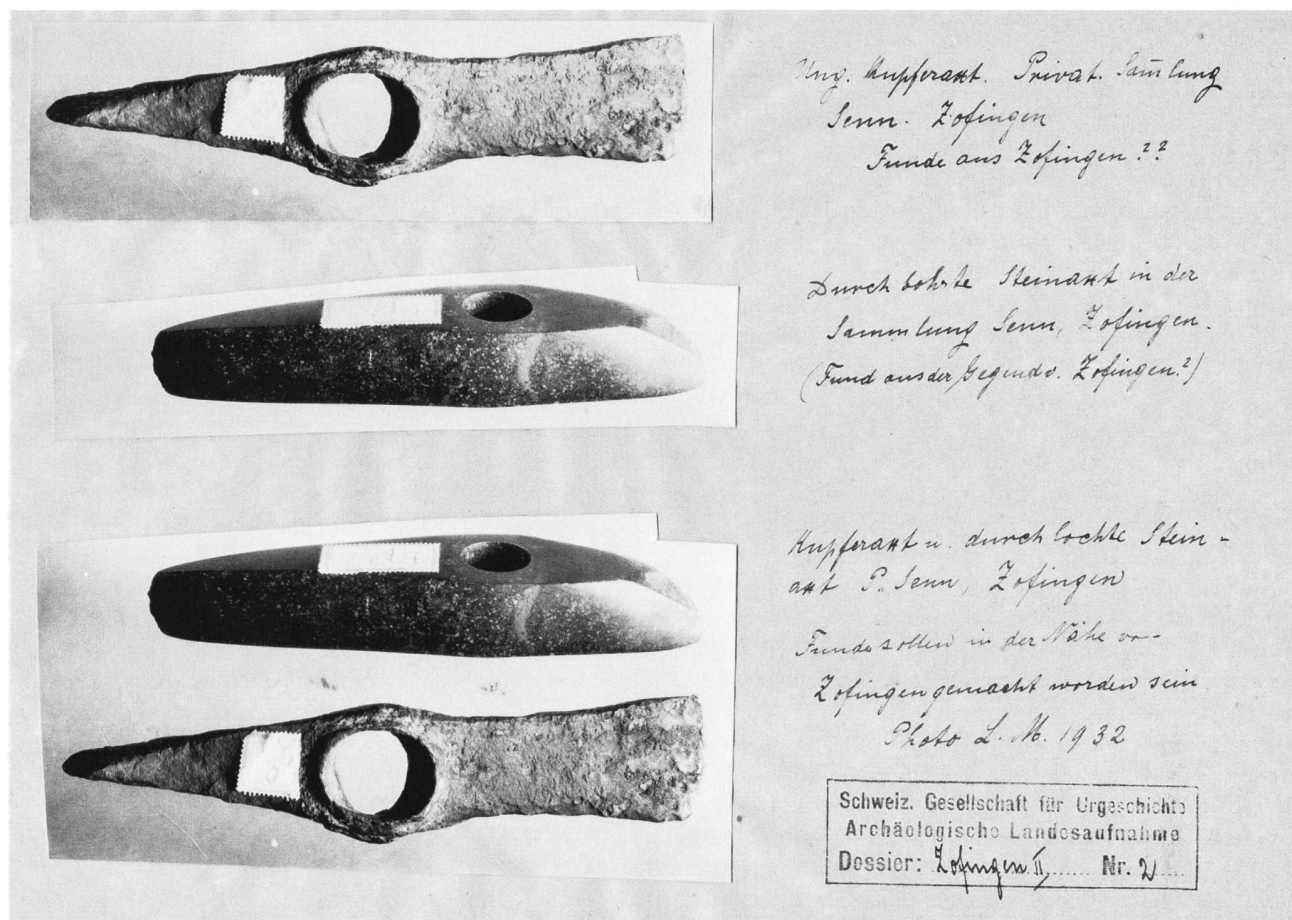 Ung. Kupferaxt. Privat. Sam̄lung
Senn. Zofingen
Funde aus Zofingen ??
Durch bohrte Steinaxt in der
Sammlung Senn, Zofingen.
(Fund aus der Gegend v. Zofingen?)
Kupferaxt u. durch lochte Stein-
axt P. Senn, Zofingen
Funde sollen in der Nähe vo-
Zofingen gemacht worden sein
Photo L. M. 1932
Schweiz. Gesellschaft für Urgeschichte
Archäologische Landesaufnahme
Dossier: Zofingen II, Nr. 2